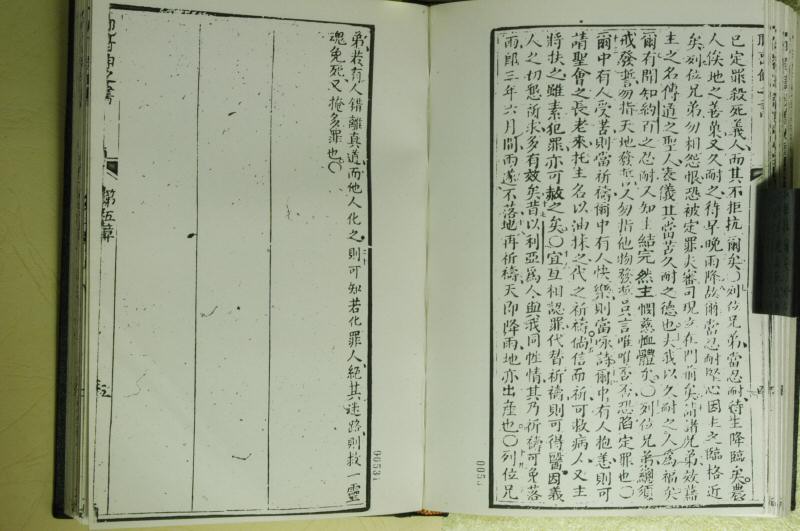 已定罪殺死義人而其不拒抗爾矣○列位兄弟當忍耐待主降臨矣農
人俟地之善菓又久耐之待早晚雨降故爾當忍耐堅心因主之臨格近
矣列位兄弟勿相怨恨恐被定罪夫審司現立在門前矣請諸兄弟效藉
主之名傳道之聖人表儀其當苦久耐之德也夫我以久耐之人為福矣
爾有聞知約百之忍耐又知主結完然主憫慈恤體矣○列位兄弟總須
戒發誓勿指天地發誓又勿指他物發誓只言唯唯否否恐陷定罪也○
爾中有人受苦則當祈禱爾中有人快樂則當咏詩爾中有人抱恙則可
請聖會之長老來托主名以油抹之代之祈禱倘信而祈可救病人又主
將扶之雖素犯罪亦可赦之矣○宜互相認罪代替祈禱則可得醫因義
人之切懇祈求多有效矣昔以利亞為人與我同性情其乃祈禱可免落
雨即三年六月間雨遂不落地再祈禱天即降雨地亦出產也○列位兄
弟若有人錯離真道而他人化之則可知若化罪人絕其迷路則救一靈
魂免死又掩多罪也○
第五章